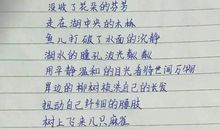 没收了花朵的芬芳
走在湖中央的木栈
鱼儿打破了水面的沉静
湖水的瞳孔波光粼粼
用平静温和的目光看待世间万物
岸边的柳树梳洗自己的长发
扭动自己纤细的腰肢
树上飞来几只麻雀